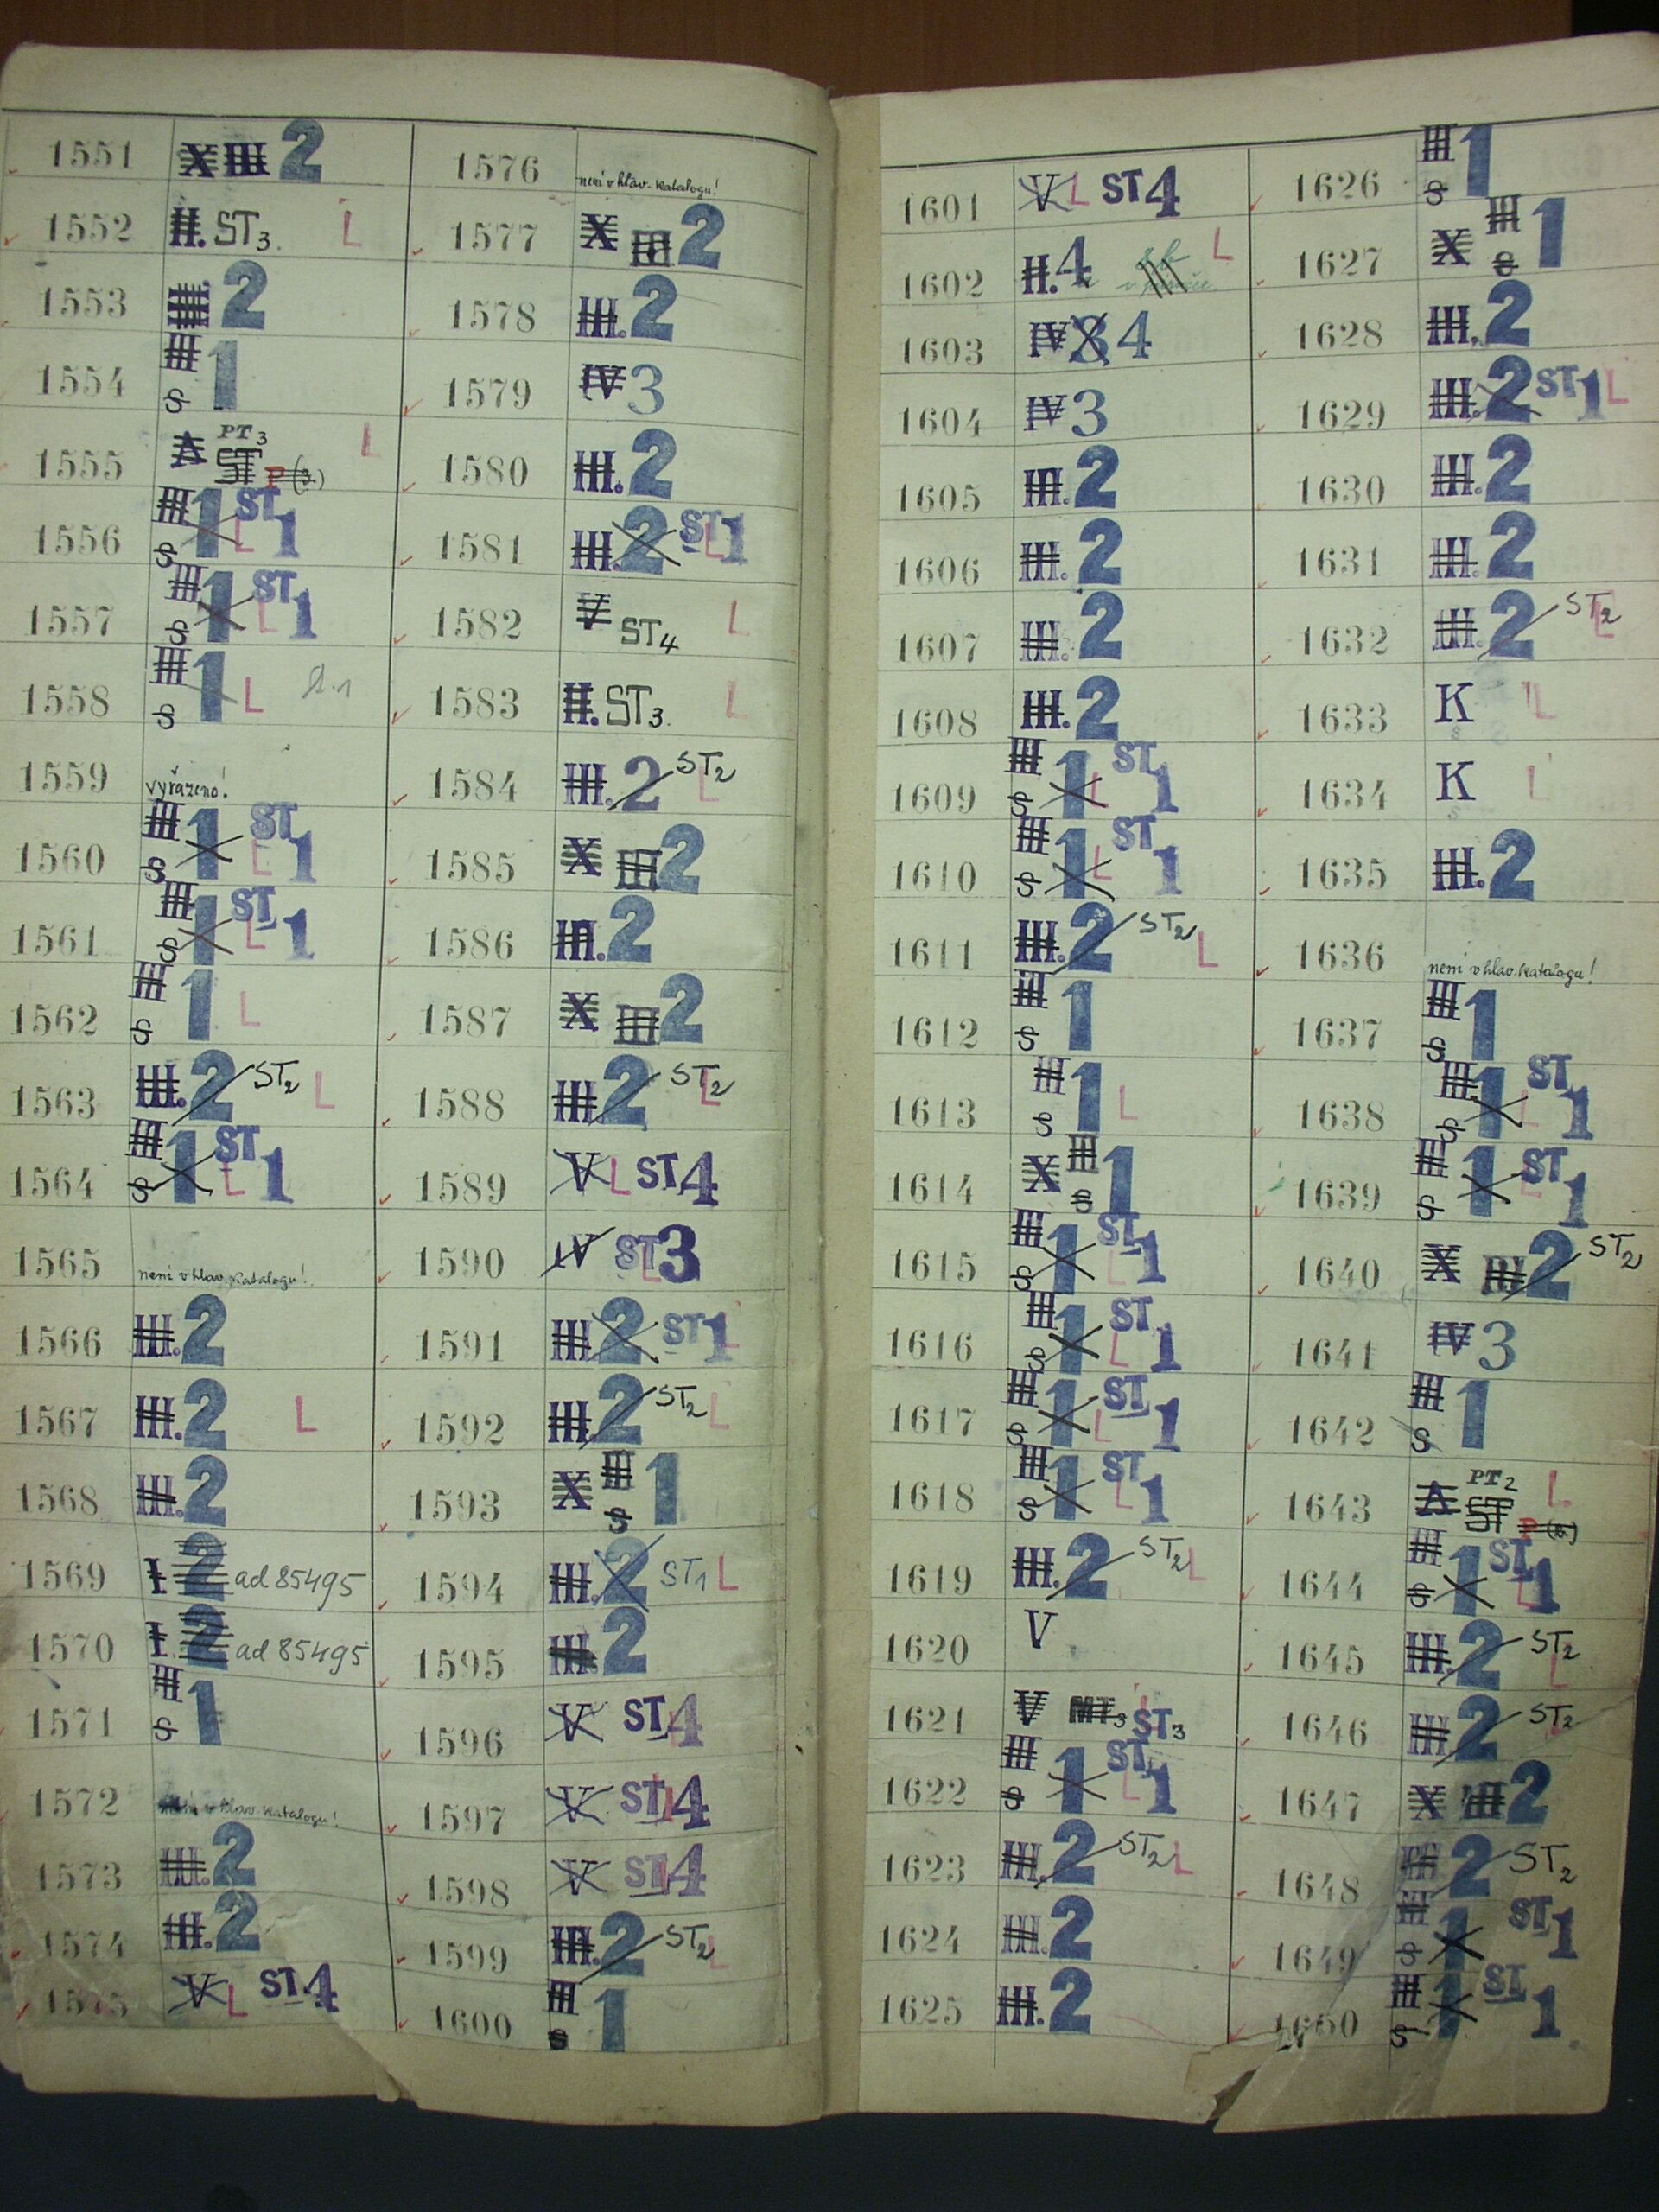 1551 X III 2
1552 II. ST3. L
1553 III. 2
1554 III S 1
1555 A PT3 ST P(3.) L
1556 III S 1 L ST 1
1557 III S 1 L ST 1
1558 III S 1 L
1559 vyřazeno!
1560 III S 1 L ST 1
1561 III S 1 L ST 1
1562 III S 1 L
1563 III. 2 ST2 L
1564 III S 1 L ST 1
1565 není v hlav. katalogu!
1566 III. 2
1567 III. 2 L
1568 III. 2
1569 I 2 ad 85495
1570 I. 2 ad 85495
1571 III S 1
1572 není v hlav. katalogu!
1573 III. 2
1574 III. 2
1575 V L ST 4
1576 není v hlav. katalogu!
1577 X III 2
1578 III. 2
1579 IV 3
1580 III. 2
1581 III. 2 ST L 1
1582 V ST4 L
1583 II. ST3. L
1584 III. 2 ST2 L
1585 X III 2
1586 III. 2
1587 X III 2
1588 III 2 ST2 L
1589 V L ST 4
1590 IV ST L 3
1591 III 2 ST 1 L
1592 III. 2 ST2 L
1593 X III S 1
1594 III. 2 ST1 L
1595 III. 2
1596 V ST L 4
1597 V ST L 4
1598 V ST L 4
1599 III. 2 ST2 L
1600 III S 1
1601 V L ST 4
1602 II. 4 L
1603 IV 3 4
1604 IV 3
1605 III. 2
1606 III. 2
1607 III. 2
1608 III. 2
1609 III S 1 L ST 1
1610 III S 1 L ST 1
1611 III. 2 ST2 L
1612 III S 1
1613 III S 1 L
1614 X III S 1
1615 III S 1 L ST 1
1616 III S 1 L ST 1
1617 III S 1 L ST 1
1618 III S 1 L ST 1
1619 III. 2 ST2 L
1620 V
1621 V MT3 ST3 L
1622 III S 1 L ST 1
1623 III. 2 ST2 L
1624 III. 2
1625 III. 2
1626 III S 1
1627 X III S 1
1628 III. 2
1629 III. 2 ST 1 L
1630 III. 2
1631 III. 2
1632 III. 2 ST2 L
1633 K L
1634 K L
1635 III. 2
1636 není v hlav. katalogu!
1637 III S 1
1638 III S 1 L ST 1
1639 III S 1 L ST 1
1640 X III 2 ST2
1641 IV 3
1642 III S 1
1643 A PT2 ST L
1644 III S 1 ST L 1
1645 III. 2 ST2 L
1646 III 2 ST2 L
1647 X III 2
1648 III 2 ST2
1649 III S 1 ST 1
1650 III S 1 ST 1